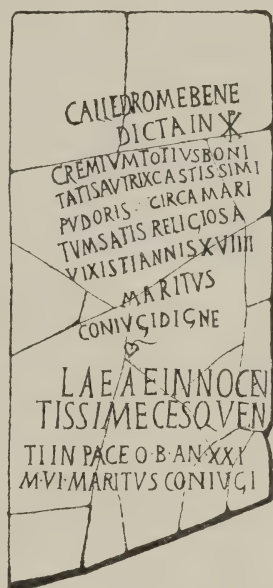 CALLEDROMEBENE
DICTA IN ☧
CREMIVMTOTIVSBONI
TATISAVTRIXCASTISSIMI
PVDORIS · CIRCAMARI
TVMSATISRELIGIOSA
VIXISTIANNISXVIIII
MARITVS
CONIVGIDIGNE
LAEAEINNOCN
TISSIMECESQVEN
TI IN PACE O·B·AN·XXI
M·VI·MARITVS CONIVGI